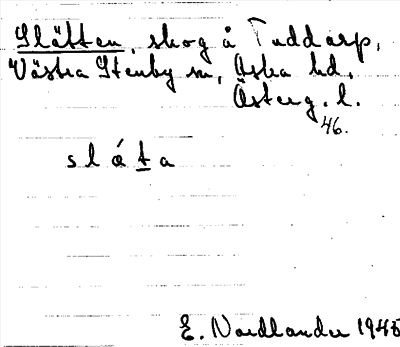 Slätten, skog å Tuddarp,
Västra Stenby sn, Aska hd,
Österg. l.
46.
slǽta
E. Nordlander 1946